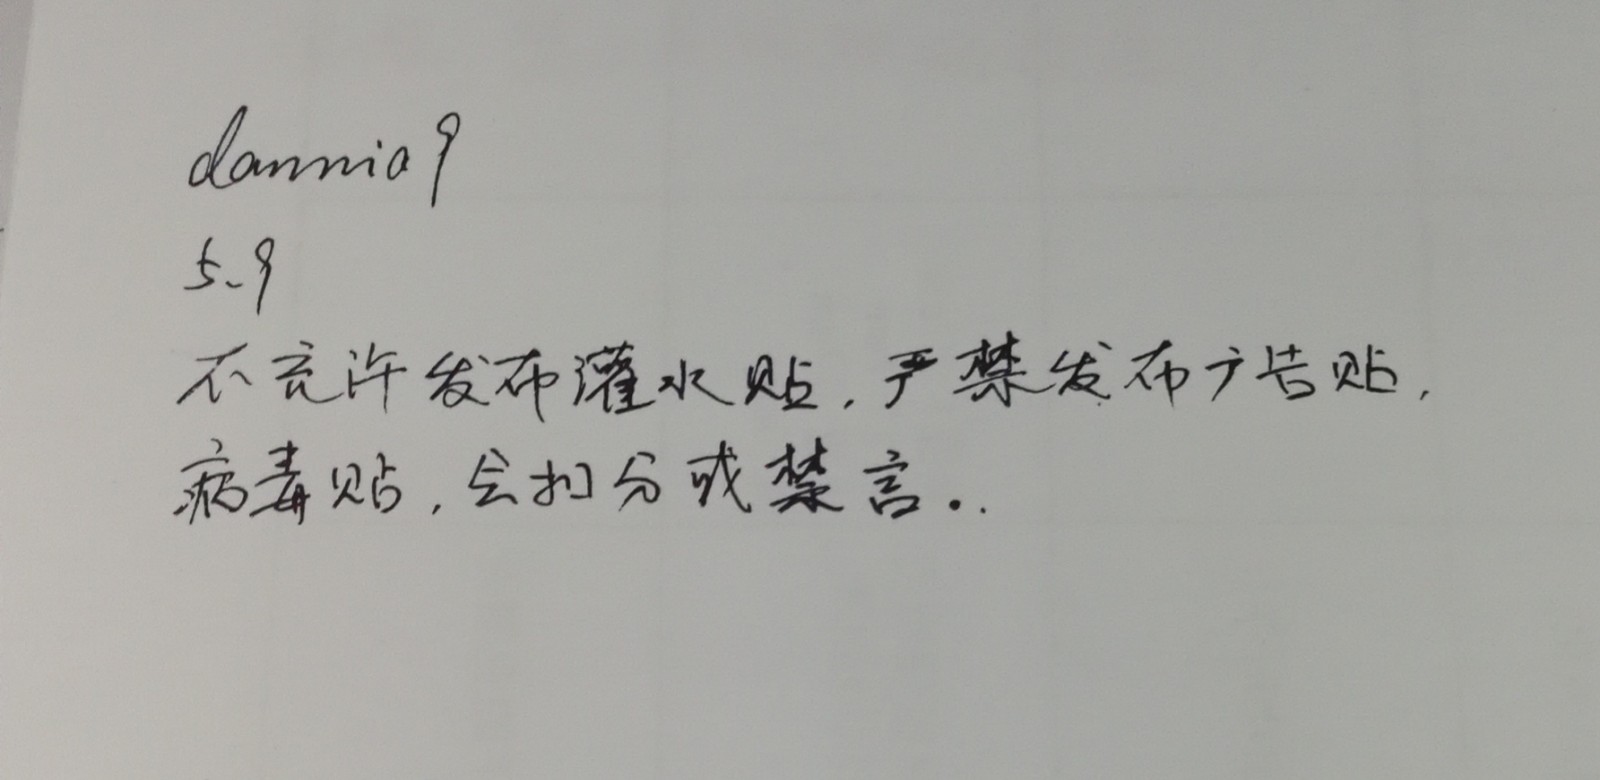 dannia9
5.9
不允许发布灌水贴,严禁发布广告贴,
病毒贴,会扣分或禁言..